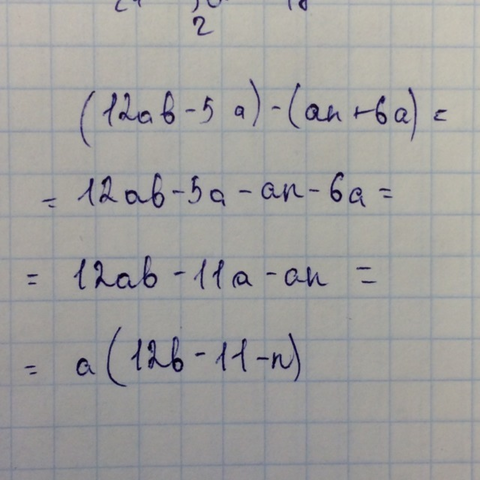 2
(12ab-5a)-(an+6a)=
=12ab-5a-an-6a=
=12ab-11a-an=
=a(12b-11-n)